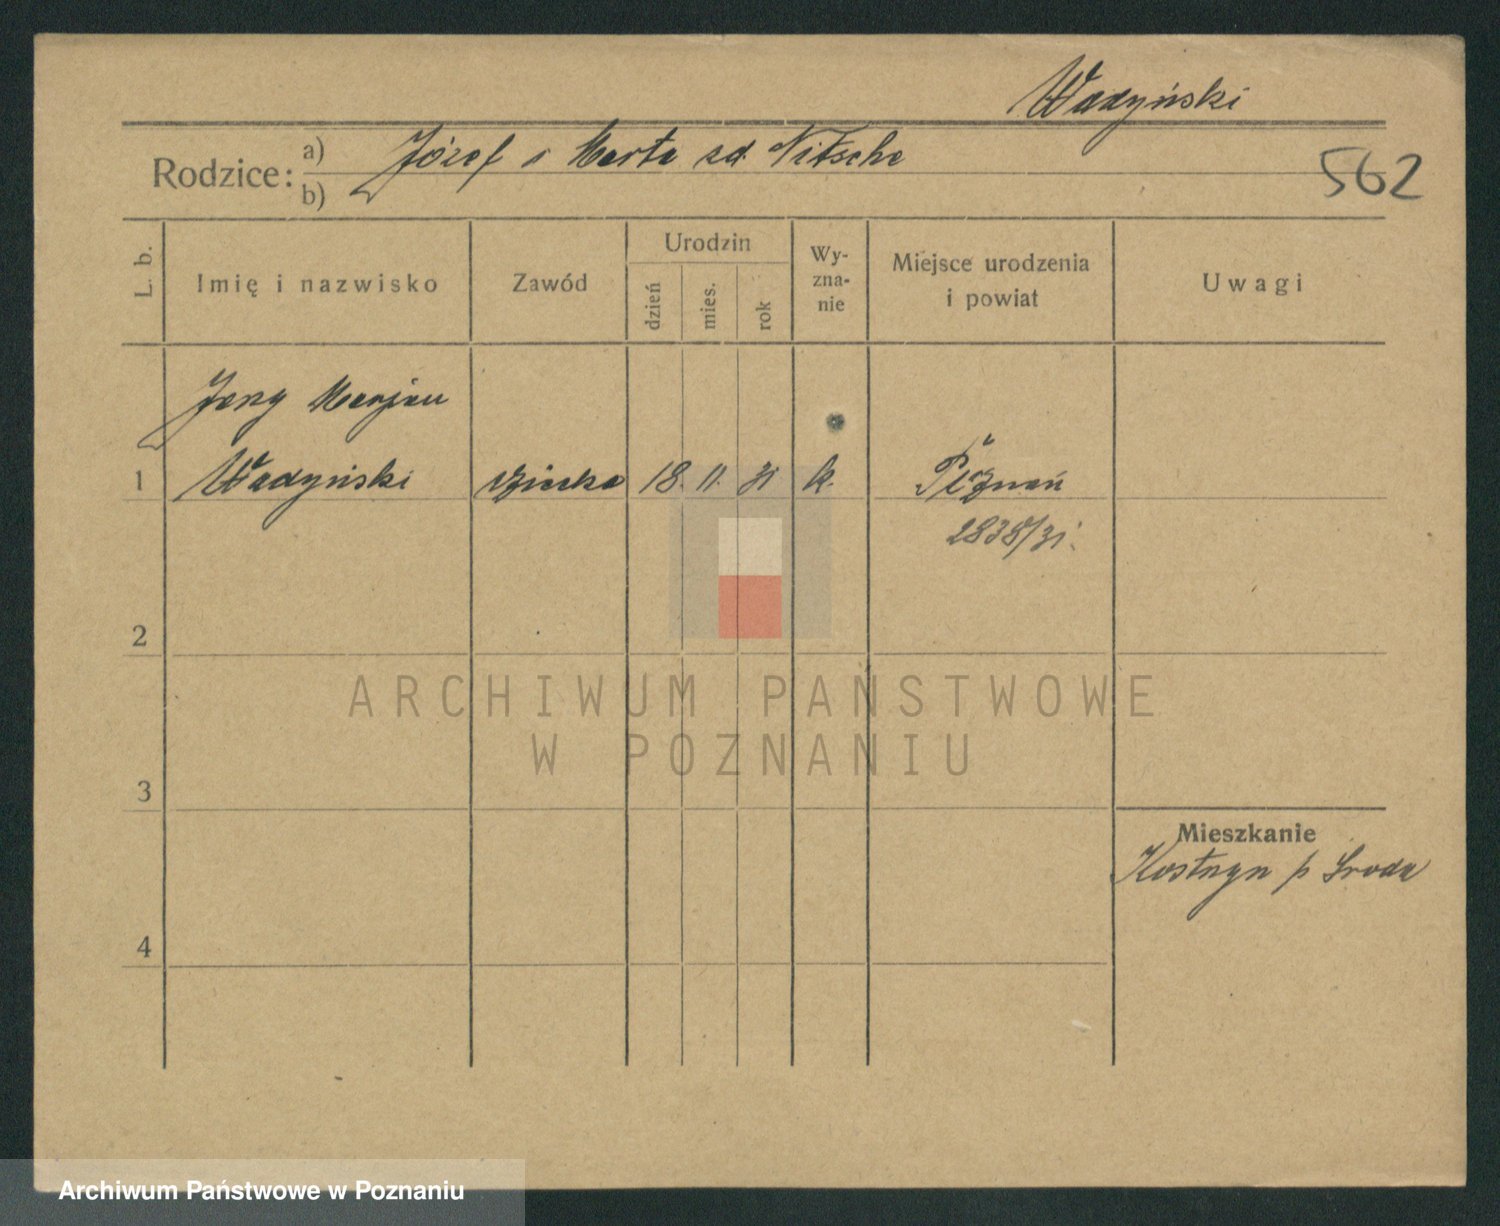 Wadyński
Rodzice: a) Józef i Marta zd. Nitsche
b)
562
L. b. Imię i nazwisko Zawód Urodzin dzień mies. rok Wy-zna-nie Miejsce urodzenia i powiat Uwagi
Jerzy Marjan
1 Wadyński dziecko 18. 11. 31 k. Poznań
2838/31.
2
3
Mieszkanie
Kostrzyn p Sroda
4
ARCHIWUM PAŃSTWOWE
W POZNANIU
Archiwum Państwowe w Poznaniu